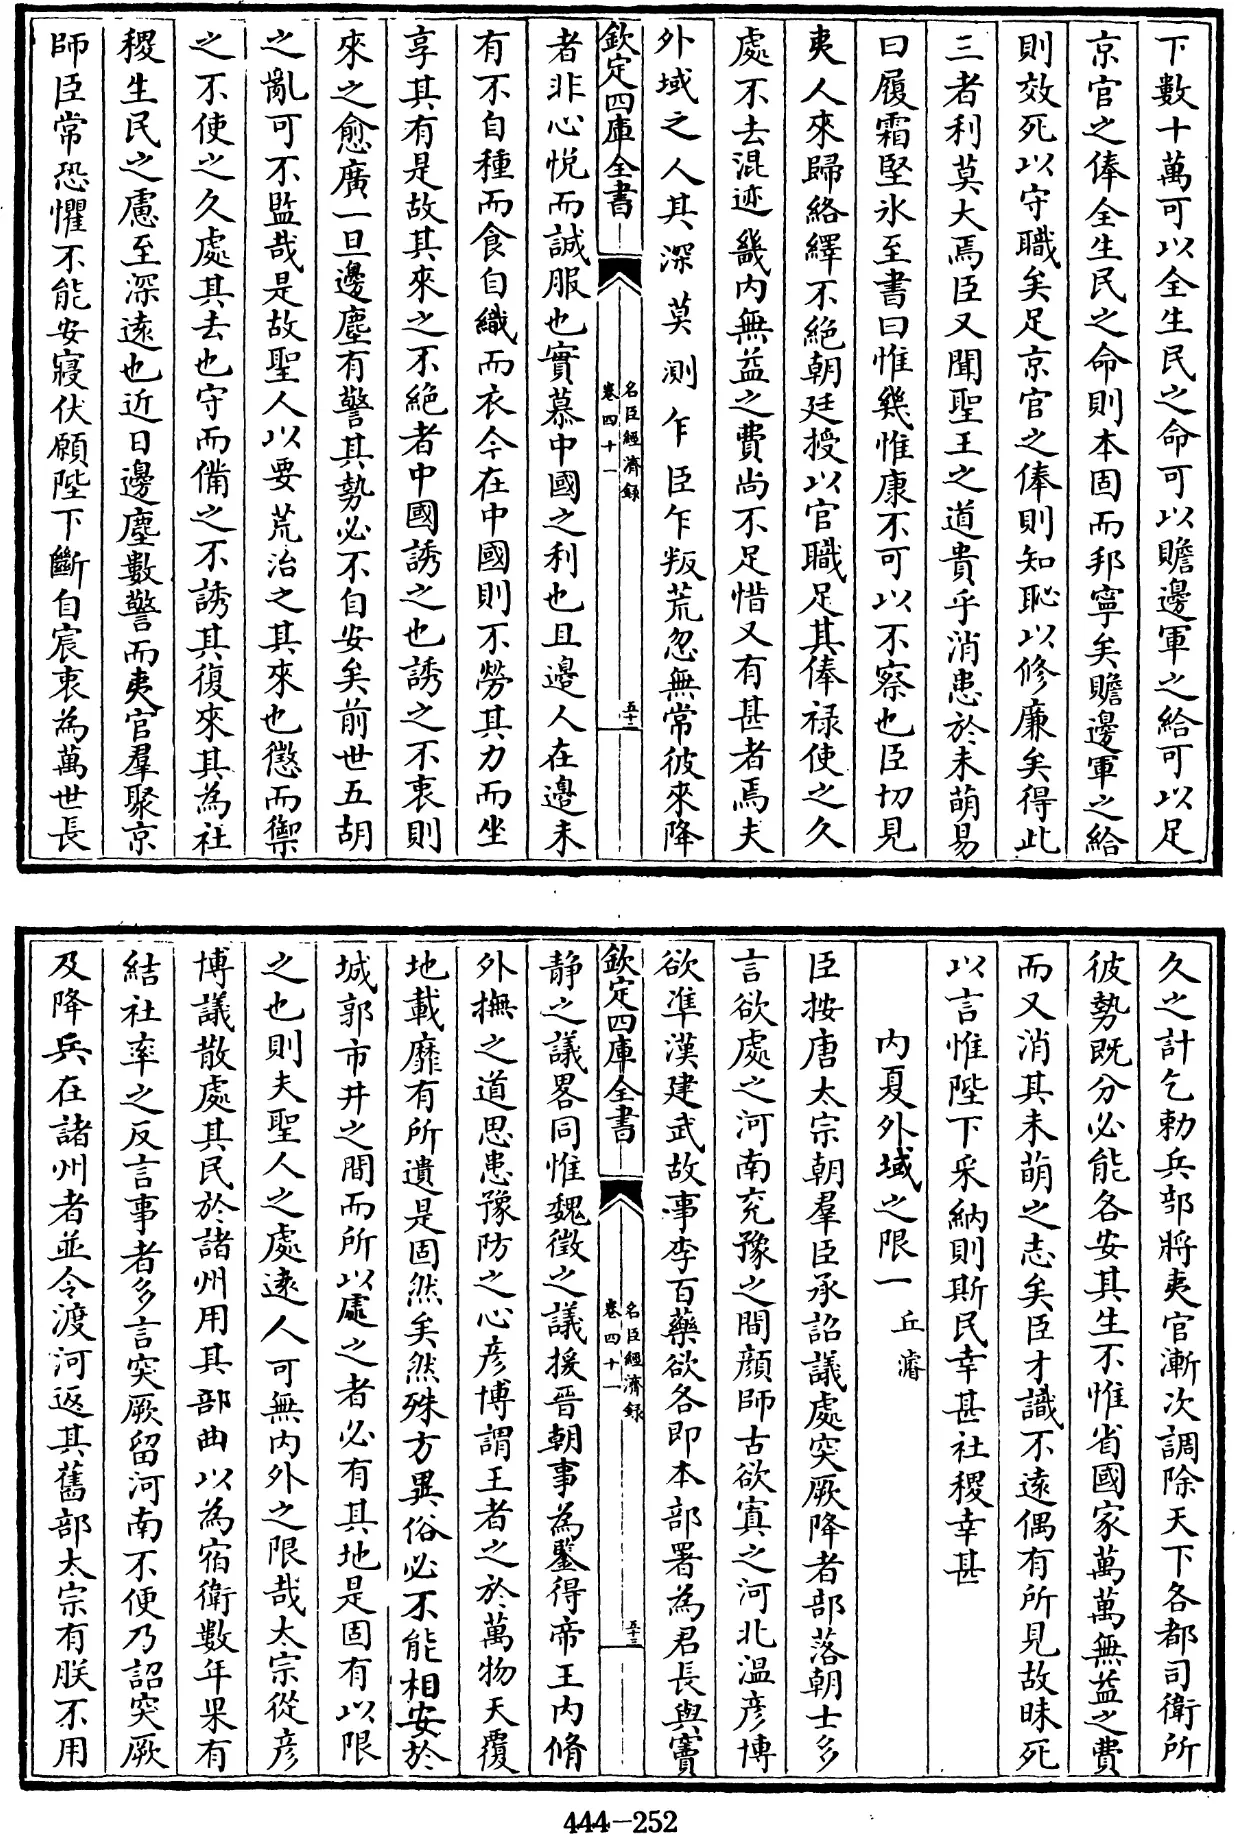 下數十萬可以全生民之命可以贍邊軍之給可以足
京官之俸全生民之命則本固而邦寧矣贍邊軍之給
則效死以守職矣足京官之俸則知恥以修廉矣得此
三者利莫大焉臣又聞聖王之道貴乎消患於未萌易
曰履霜堅氷至書曰惟幾惟康不可以不察也臣切見
夷人來歸絡繹不絕朝廷授以官職足其俸禄使之久
處不去混迹畿内無益之費尚不足惜又有甚者焉夫
外域之人其深莫測乍臣乍叛荒忽無常彼來降
欽定四庫全書
名臣經濟錄
卷四十一
五十二
者非心悦而誠服也實慕中國之利也且邊人在邊未
有不自種而食自織而衣今在中國則不勞其力而坐
享其有是故其來之不絕者中國誘之也誘之不衷則
來之愈廣一旦邊塵有警其勢必不自安矣前世五胡
之亂可不監哉是故聖人以要荒治之其來也懲而禦
之不使之久處其去也守而備之不誘其復來其為社
稷生民之慮至深遠也近日邊塵數警而夷官羣聚京
師臣常恐懼不能安寢伏願陛下斷自宸衷為萬世長
久之計乞勅兵部將夷官漸次調除天下各都司衛所
彼勢既分必能各安其生不惟省國家萬萬無益之費
而又消其未萌之志矣臣才識不遠偶有所見故昧死
以言惟陛下采納則斯民幸甚社稷幸甚
内夏外域之限一 丘濬
臣按唐太宗朝羣臣承詔議處突厥降者部落朝士多
言欲處之河南兖豫之間顔師古欲寘之河北温彦博
欲準漢建武故事李百藥欲各即本部署為君長與竇
欽定四庫全書
名臣經濟錄
卷四十一
五十三
静之議畧同惟魏徵之議援晋朝事為鑒得帝王内脩
外撫之道思患豫防之心彦博謂王者之於萬物天覆
地載靡有所遺是固然矣然殊方異俗必不能相安於
城郭市井之間而所以處之者必有其地是固有以限
之也則夫聖人之處遠人可無内外之限哉太宗從彦
博議散處其民於諸州用其部曲以為宿衛數年果有
結社率之反言事者多言突厥留河南不便乃詔突厥
及降兵在諸州者並令渡河返其舊部太宗有朕不用
444-252